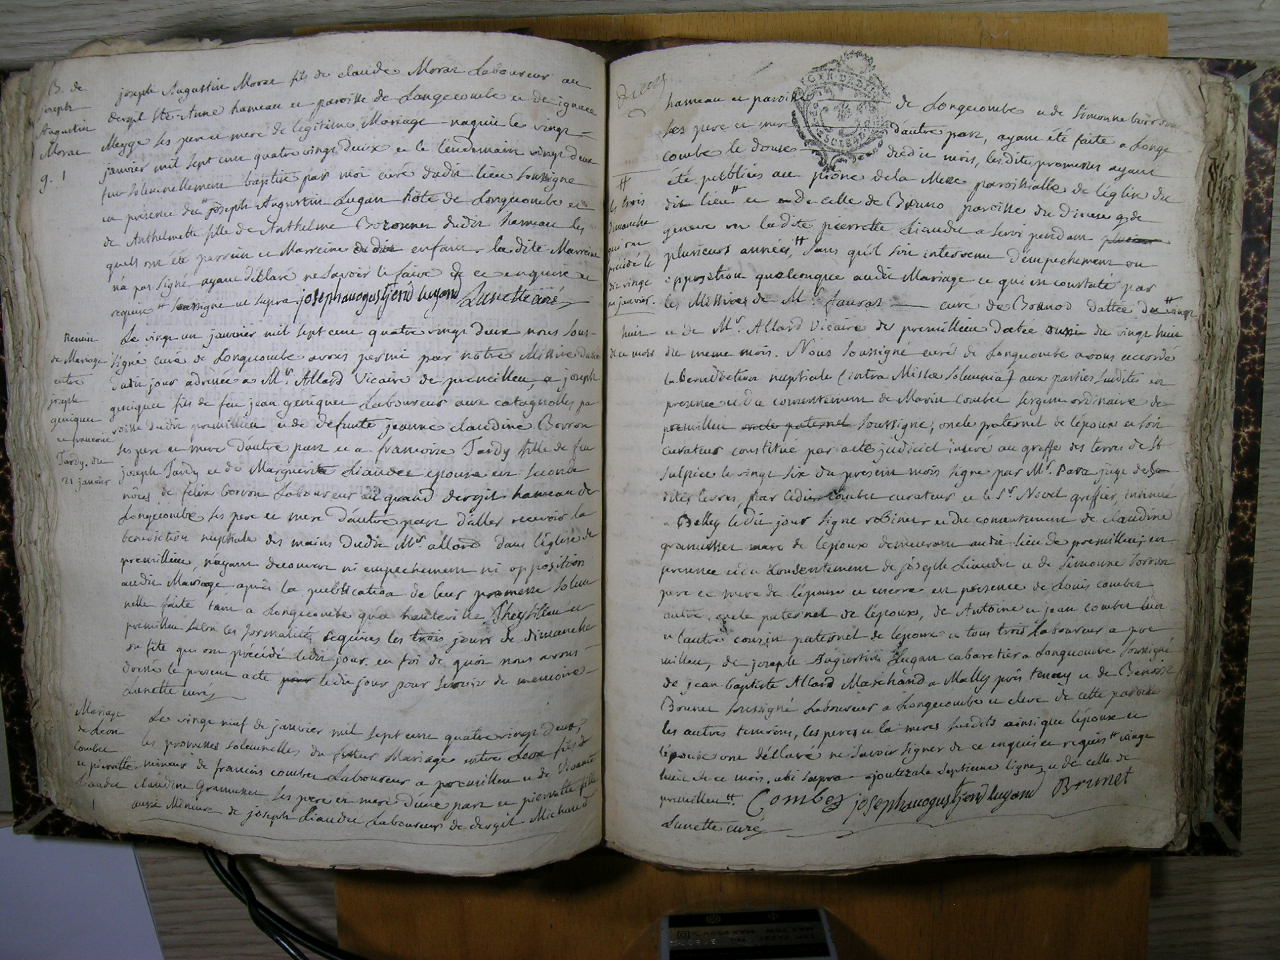 B. de
joseph
Augustin
Moraz
g. 1
joseph Augustin Moraz fils de claude Moraz Laboureur au
dergit Ste Anne hameau et paroisse de Longecombe et de ignace
Meyge ses pere et mere de legitime Mariage naquit le vingt
janvier mil sept cent quatre vingt deux et le lendemain vingt deux
fut solemnellement baptisé par moi curé dudit lieu soussigné
en présence de joseph Augustin Lugan hôte de Longecombe et
de Anthelmette fille de Anthelme dudit hameau les
quels ont été parrein et Marreine dudit enfant la dite Marreine
n'a pas signé ayant déclaré ne savoir le faire de ce enquise et
requise soussigné ut supra josephauogustjend lugand Lunette curé
Remise
de Mariage
entre
joseph
geniquet
et francoise
Tardy. du
21 janvier
Le vingt un janvier mil sept cent quatre vingt deux nous sous
signé curé de Longecombe avons permi par notre Missive datée
dudit jour adressée a Mr. Allard Vicaire de premillieu a joseph
geniquet fils de feu jean geniquet Laboureur aux catagnolles pa
roisse dudit premillieu et de defunte jeanne claudine Borron
ses pere et mere d'autre part et a francoise Tardy fille de feu
joseph Tardy et de Marguerite Liaudet epouse en seconde
nôces de felix borron Laboureur au grand dergit hameau de
Longecombe ses pere et mere d'autre part d'aller recevoir la
benediction nuptiale des mains dudit Mr allard dans l'Eglise de
premillieu, n'ayant decouvert ni empechement ni opposition
audit Mariage après la publication de leur promesse solem
nelle faite tant a Longecombe qu'a hauteville Thezillieu et
premillieu selon les formalités requises les trois jours de dimanche
ou fête qui ont précédé ledit jour, en foi de quoi nous avons
donné le present acte ledit jour pour servir de memoire
Lunette curé
Mariage
de Leon
Combet
et pierrette
Liaudet
1
Le vingt neuf de janvier mil sept cent quatre vingt deux,
les promesses solemnelles du futur Mariage entre Leon fils
mineur de francois combet Laboureur a premillieu et de
claudine Grammusset ses pere et mere d'une part et pierrette fille
aussi Mineure de joseph Liaudet Laboureur de dergit Michaud
hameau et paroisse de Longecombe et de Simonne borron
ses pere et mere d'autre part, ayant été faite a Longe
combe le douse dudit mois, lesdites promesses ayant
été publiées au prône de la Messe paroissialle de l'église du
dit lieu # et de celle de Brenod paroisse du diocese de
geneve ou ladite pierrette Liaudet a servi pendant
plusieurs années, # sans qu'il soit intervenu d'empechement ou
opposition quelconque audit Mariage ce qui est constaté par
les Missives de Mr. Lauras curé de Brenod dattée du # vingt
et de Mr. Allard Vicaire de premillieu datée du vingt huit
du meme mois. Nous soussigné curé de Longecombe avons accordé
la benediction nuptiale (intra Missae solemnia) aux parties susdites en
presence et du consentement de Marin Combet sergent ordinaire de
premillieu soussigné; oncle paternel de l'époux et son
curateur constitué par acte judiciel inseré au greffe des terres de St
sulpice le vingt six du present mois signé par Mr. Para juge
dites terres, par ledit combet curateur et le Sr. Novel greffier, insinué
a Belley ledit jour signé robinet et du consentement de claudine
gramusset mere de l'époux demeurant audit lieu de premillieu, en
presence et du consentement de joseph Liaudet et de simonne borron
pere et mere de l'épouse et encore en présence de Louis combet
autre oncle paternel de l'époux, de Antoine et jean combet l'un
et l'autre cousin paternel de l'époux et tous trois Laboureur a pre
millieu, de joseph Augustin Lugan cabaretier a Longecombe soussigné
de jean baptiste Allard Marchand a Mally près et de Benoit
Brunet soussigné Laboureur a Longecombe et eleve de cette paroisse
les autres temoins, les peres et la meres susdits ainsi que l'époux et
l'épouse ont déclaré ne savoir signer de ce enquis et requis # vingt
huit de ce mois. ubi supra ajouté a la septieme ligne, et de celle de
premillieu #. Combes josephauogustjend lugand Brunet
Lunette curé
#
les trois
dimanche
qui ont
précédé le
vingt
janvier.
huit
de ce mois